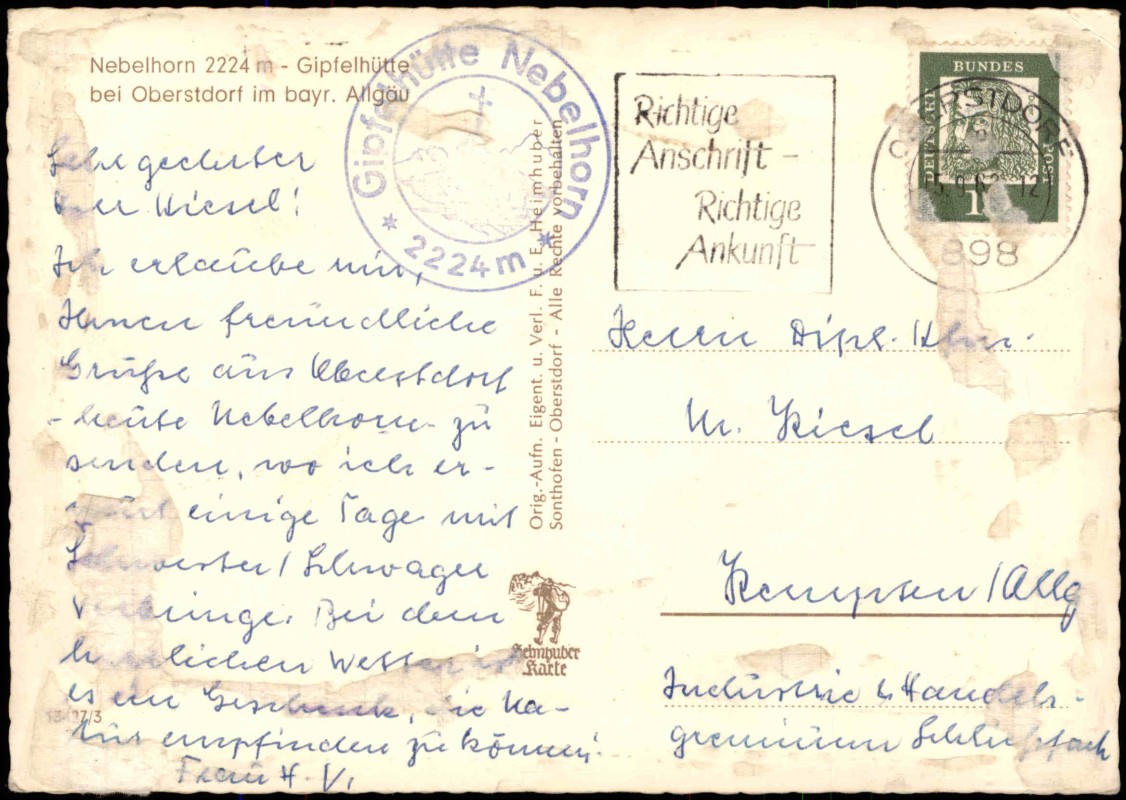 Nebelhorn 2224 m - Gipfelhütte
bei Oberstdorf im bayr. Allgäu
Gipfelhütte Nebelhorn
* 2224m *
Richtige
Anschrift -
Richtige
Ankunft
BUNDES
DEUTSCHE
POST
OBERSTDORF
898
Sehr geehrter
Herr Kiesel!
Ich erlaube mir,
Ihnen freundliche
Grüße aus Oberstdorf
- heute Nebelhorn - zu
senden, wo ich er-
neut einige Tage mit
Schwester / Schwager
verbringe. Bei dem
herrlichen Wetter ist
es ein Geschenk, die Na-
tur empfinden zu können.
Frau H. V.
Orig.-Aufn. Eigent. u. Verl. F. u. E. Heimhuber
Sonthofen - Oberstdorf - Alle Rechte vorbehalten
Heimhuber
Karte
Herrn Dipl.
W. Kiesel
Kempten / Allg
Industrie & Handels-
gremium Schließfach